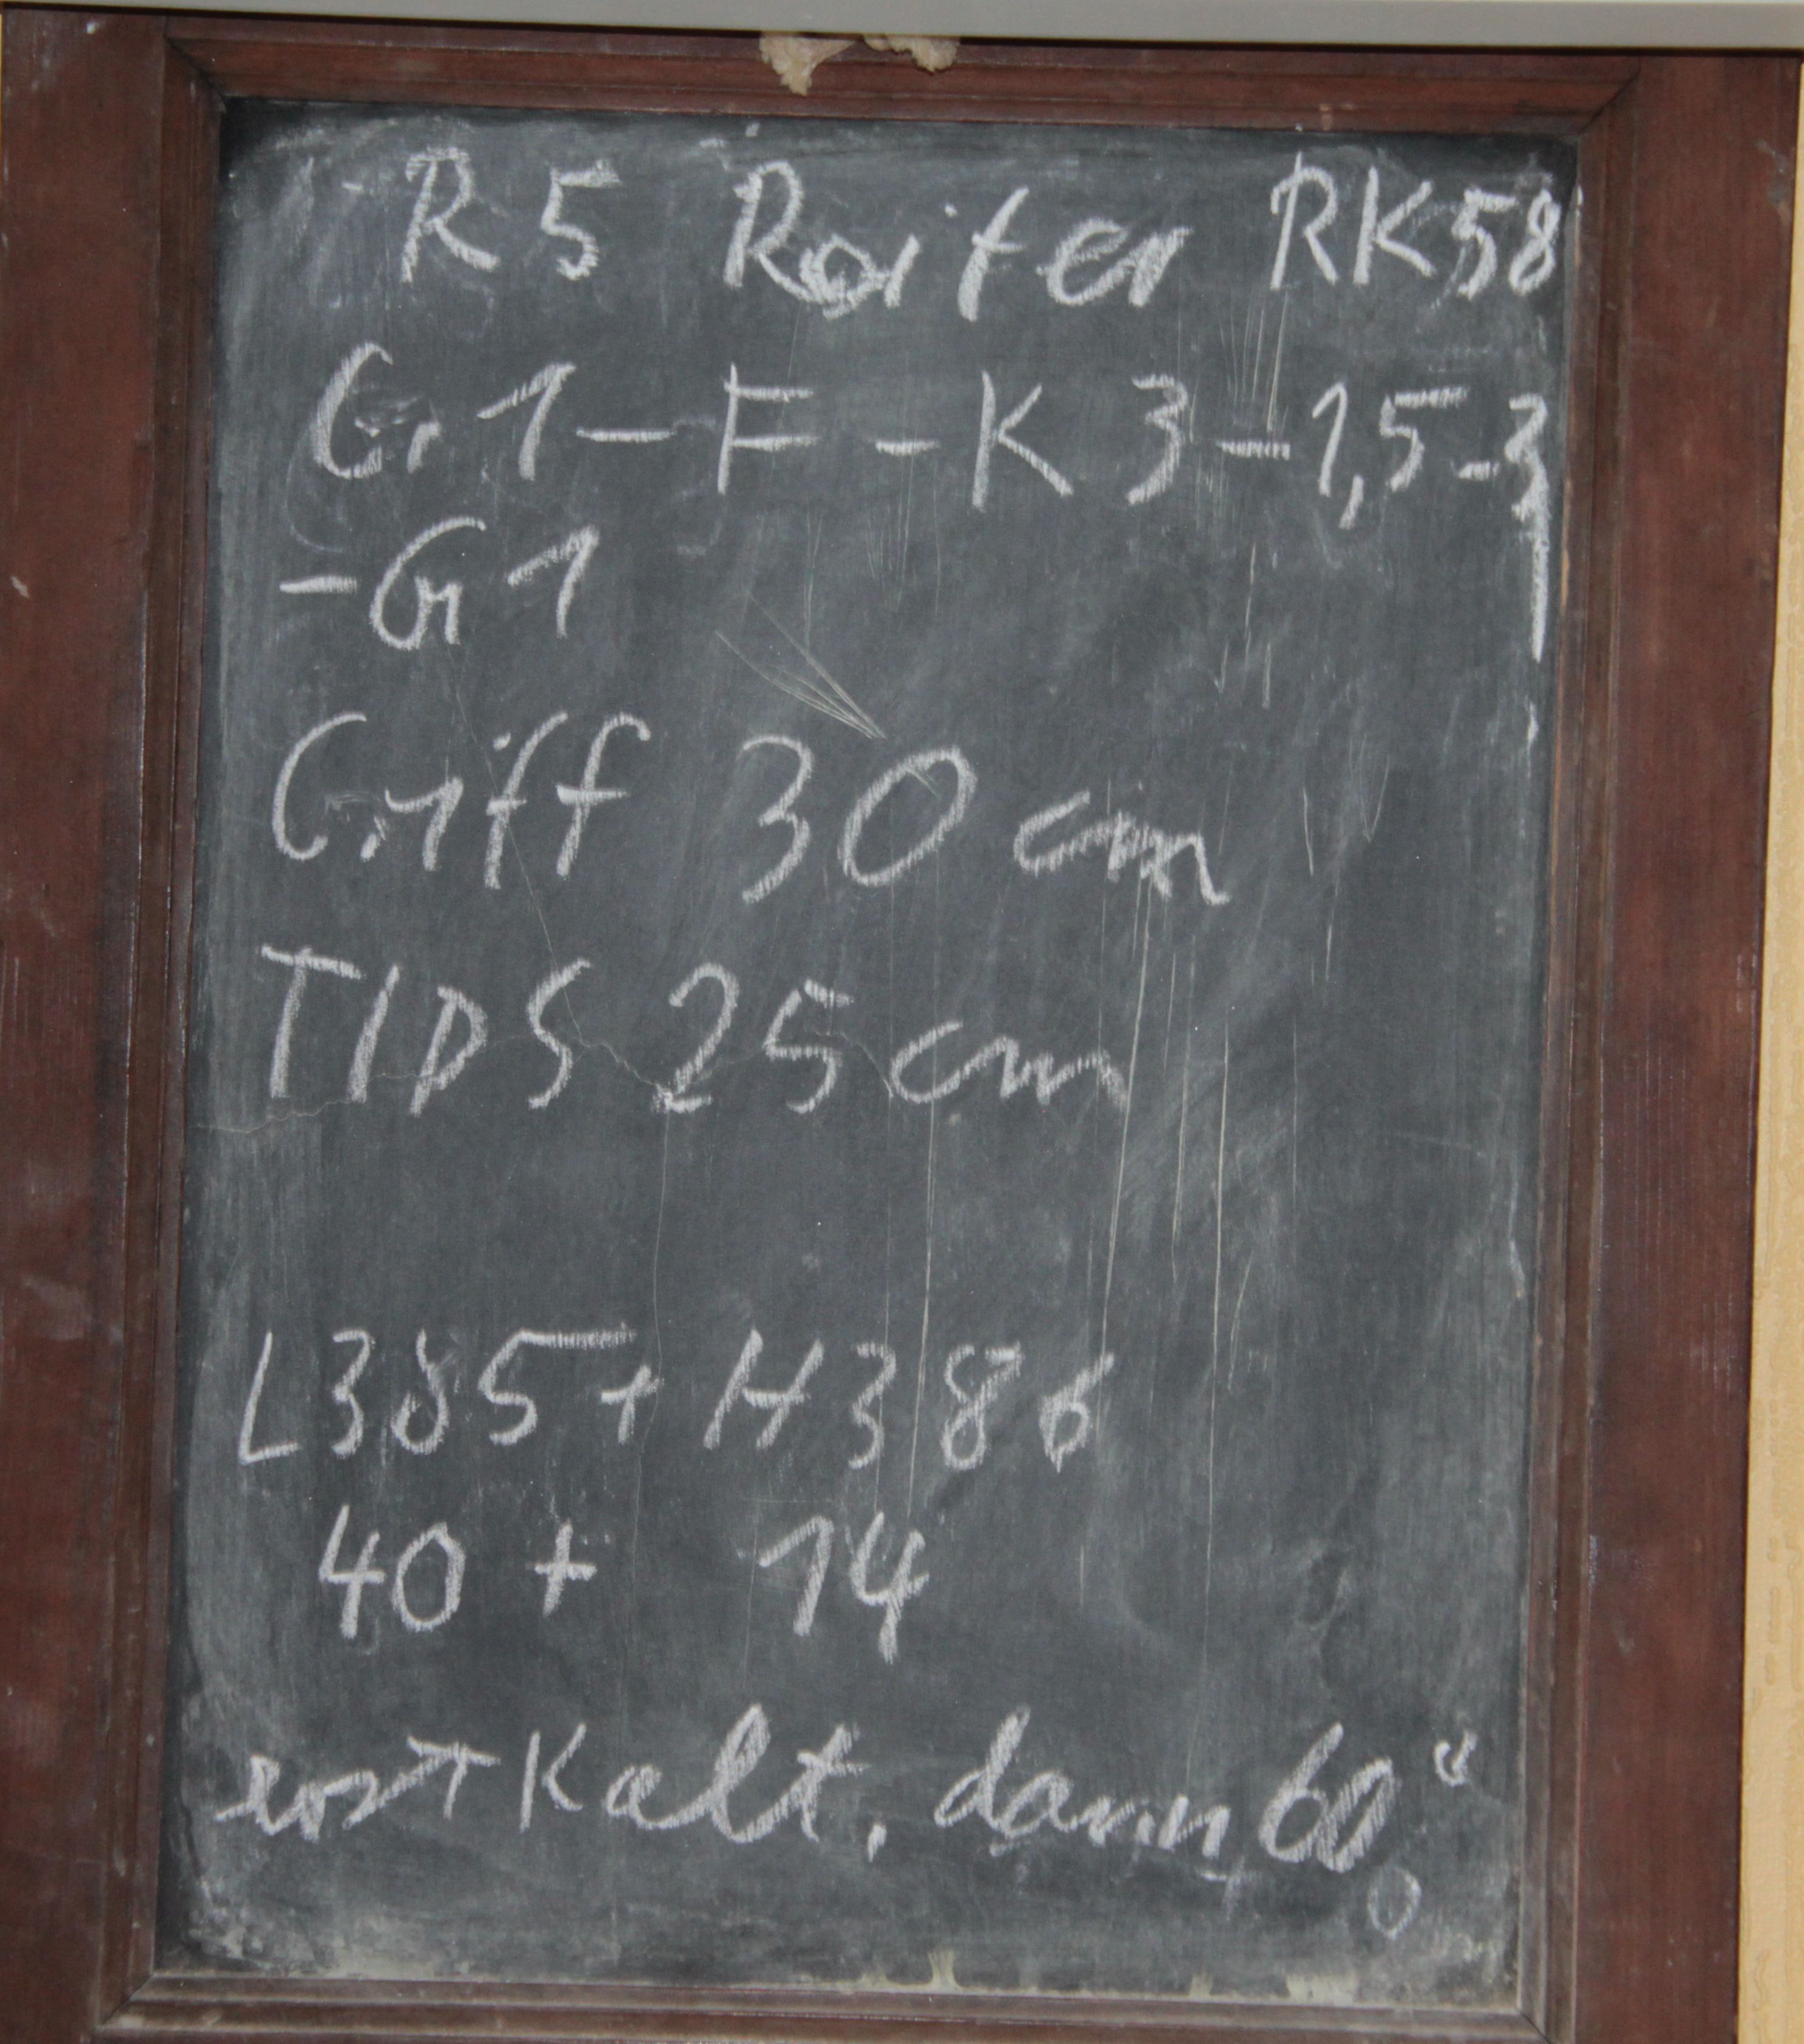 R 5 Reiter RK58
Gr 1 – F – K 3 – 1,5 - 3
- Gr 1
Griff 30 cm
TIDS 25 cm
L385 + H386
40 + 14
erst Kalt, dann 60°